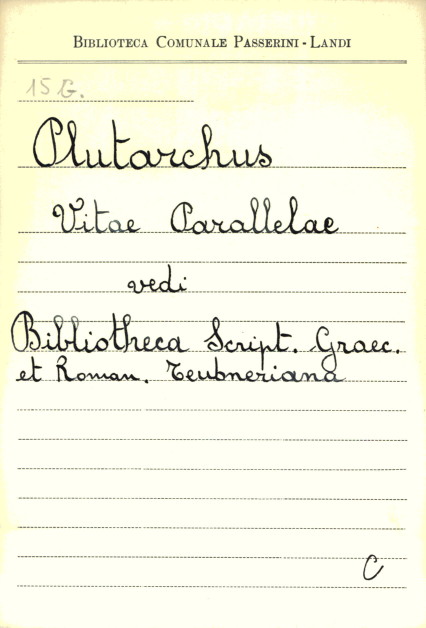 BIBLIOTECA COMUNALE PASSERINI - LANDI
15 G.
Plutarchus
Vitae Parallelae
vedi
Bibliotheca Script. Graec.
et Roman. Teubneriana
C